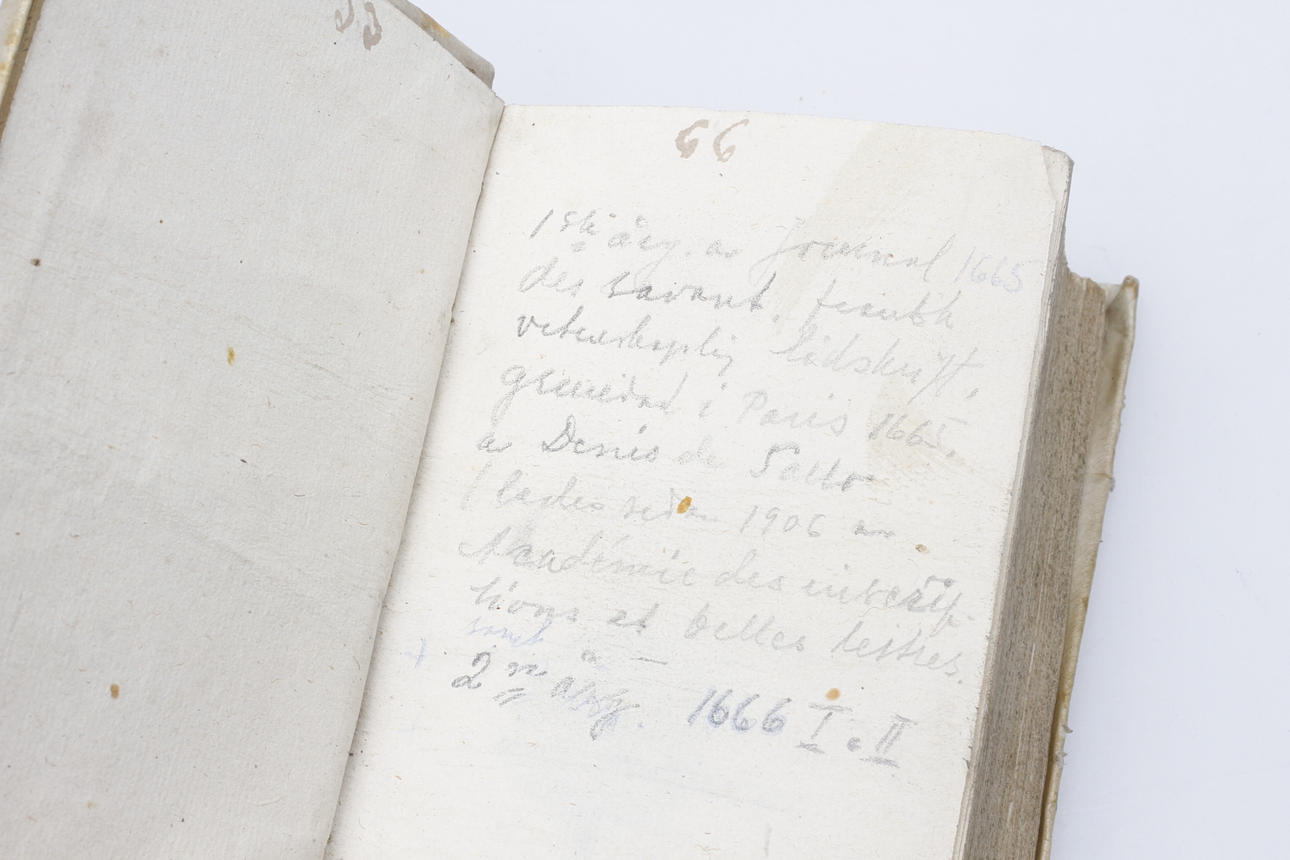 66
1ste årg. av Journal 1665
des savant, fransk
vetenskaplig tidskrift,
grundad i Paris 1665.
av Denis de Sallo
(ledes sedan 1906 av
Académie des inscrip-
tions et belles lettres.
samt
2n årg. 1666 I o II